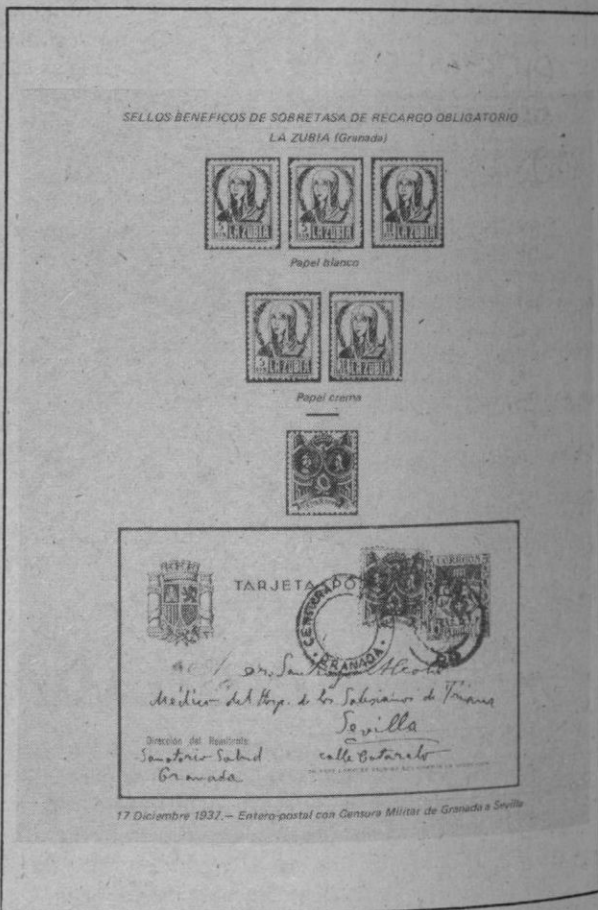 SELLOS BENEFICOS DE SOBRETASA DE RECARGO OBLIGATORIO
LA ZUBIA (Granada)
5 LA ZUBIA
LA ZUBIA
LA ZUBIA
Papel blanco
5 LA ZUBIA
LA ZUBIA
Papel crema
TARJETA PO
CORREOS
CENSURA
GRANADA
Dr. San
Médico del Hosp. de los Salesianos de Triana
Sevilla
Dirección del Remitente
Sanatorio Salud
calle
Granada
17 Diciembre 1937.— Entero-postal con Censura Militar de Granada a Sevilla